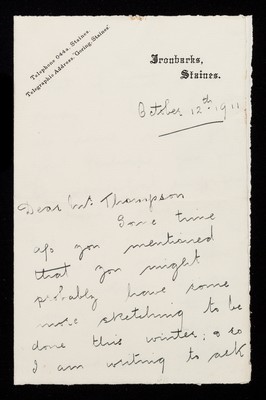 Telephone 044, Staines.
Telegraphic Address, "Goring, Staines."
Ironbarks,
Staines.
October 12th 1911.
Dear Mr. Thompson
Some time
ago you mentioned
that you might
probably have some
more sketching to be
done this winter; & so
I am writing to ask